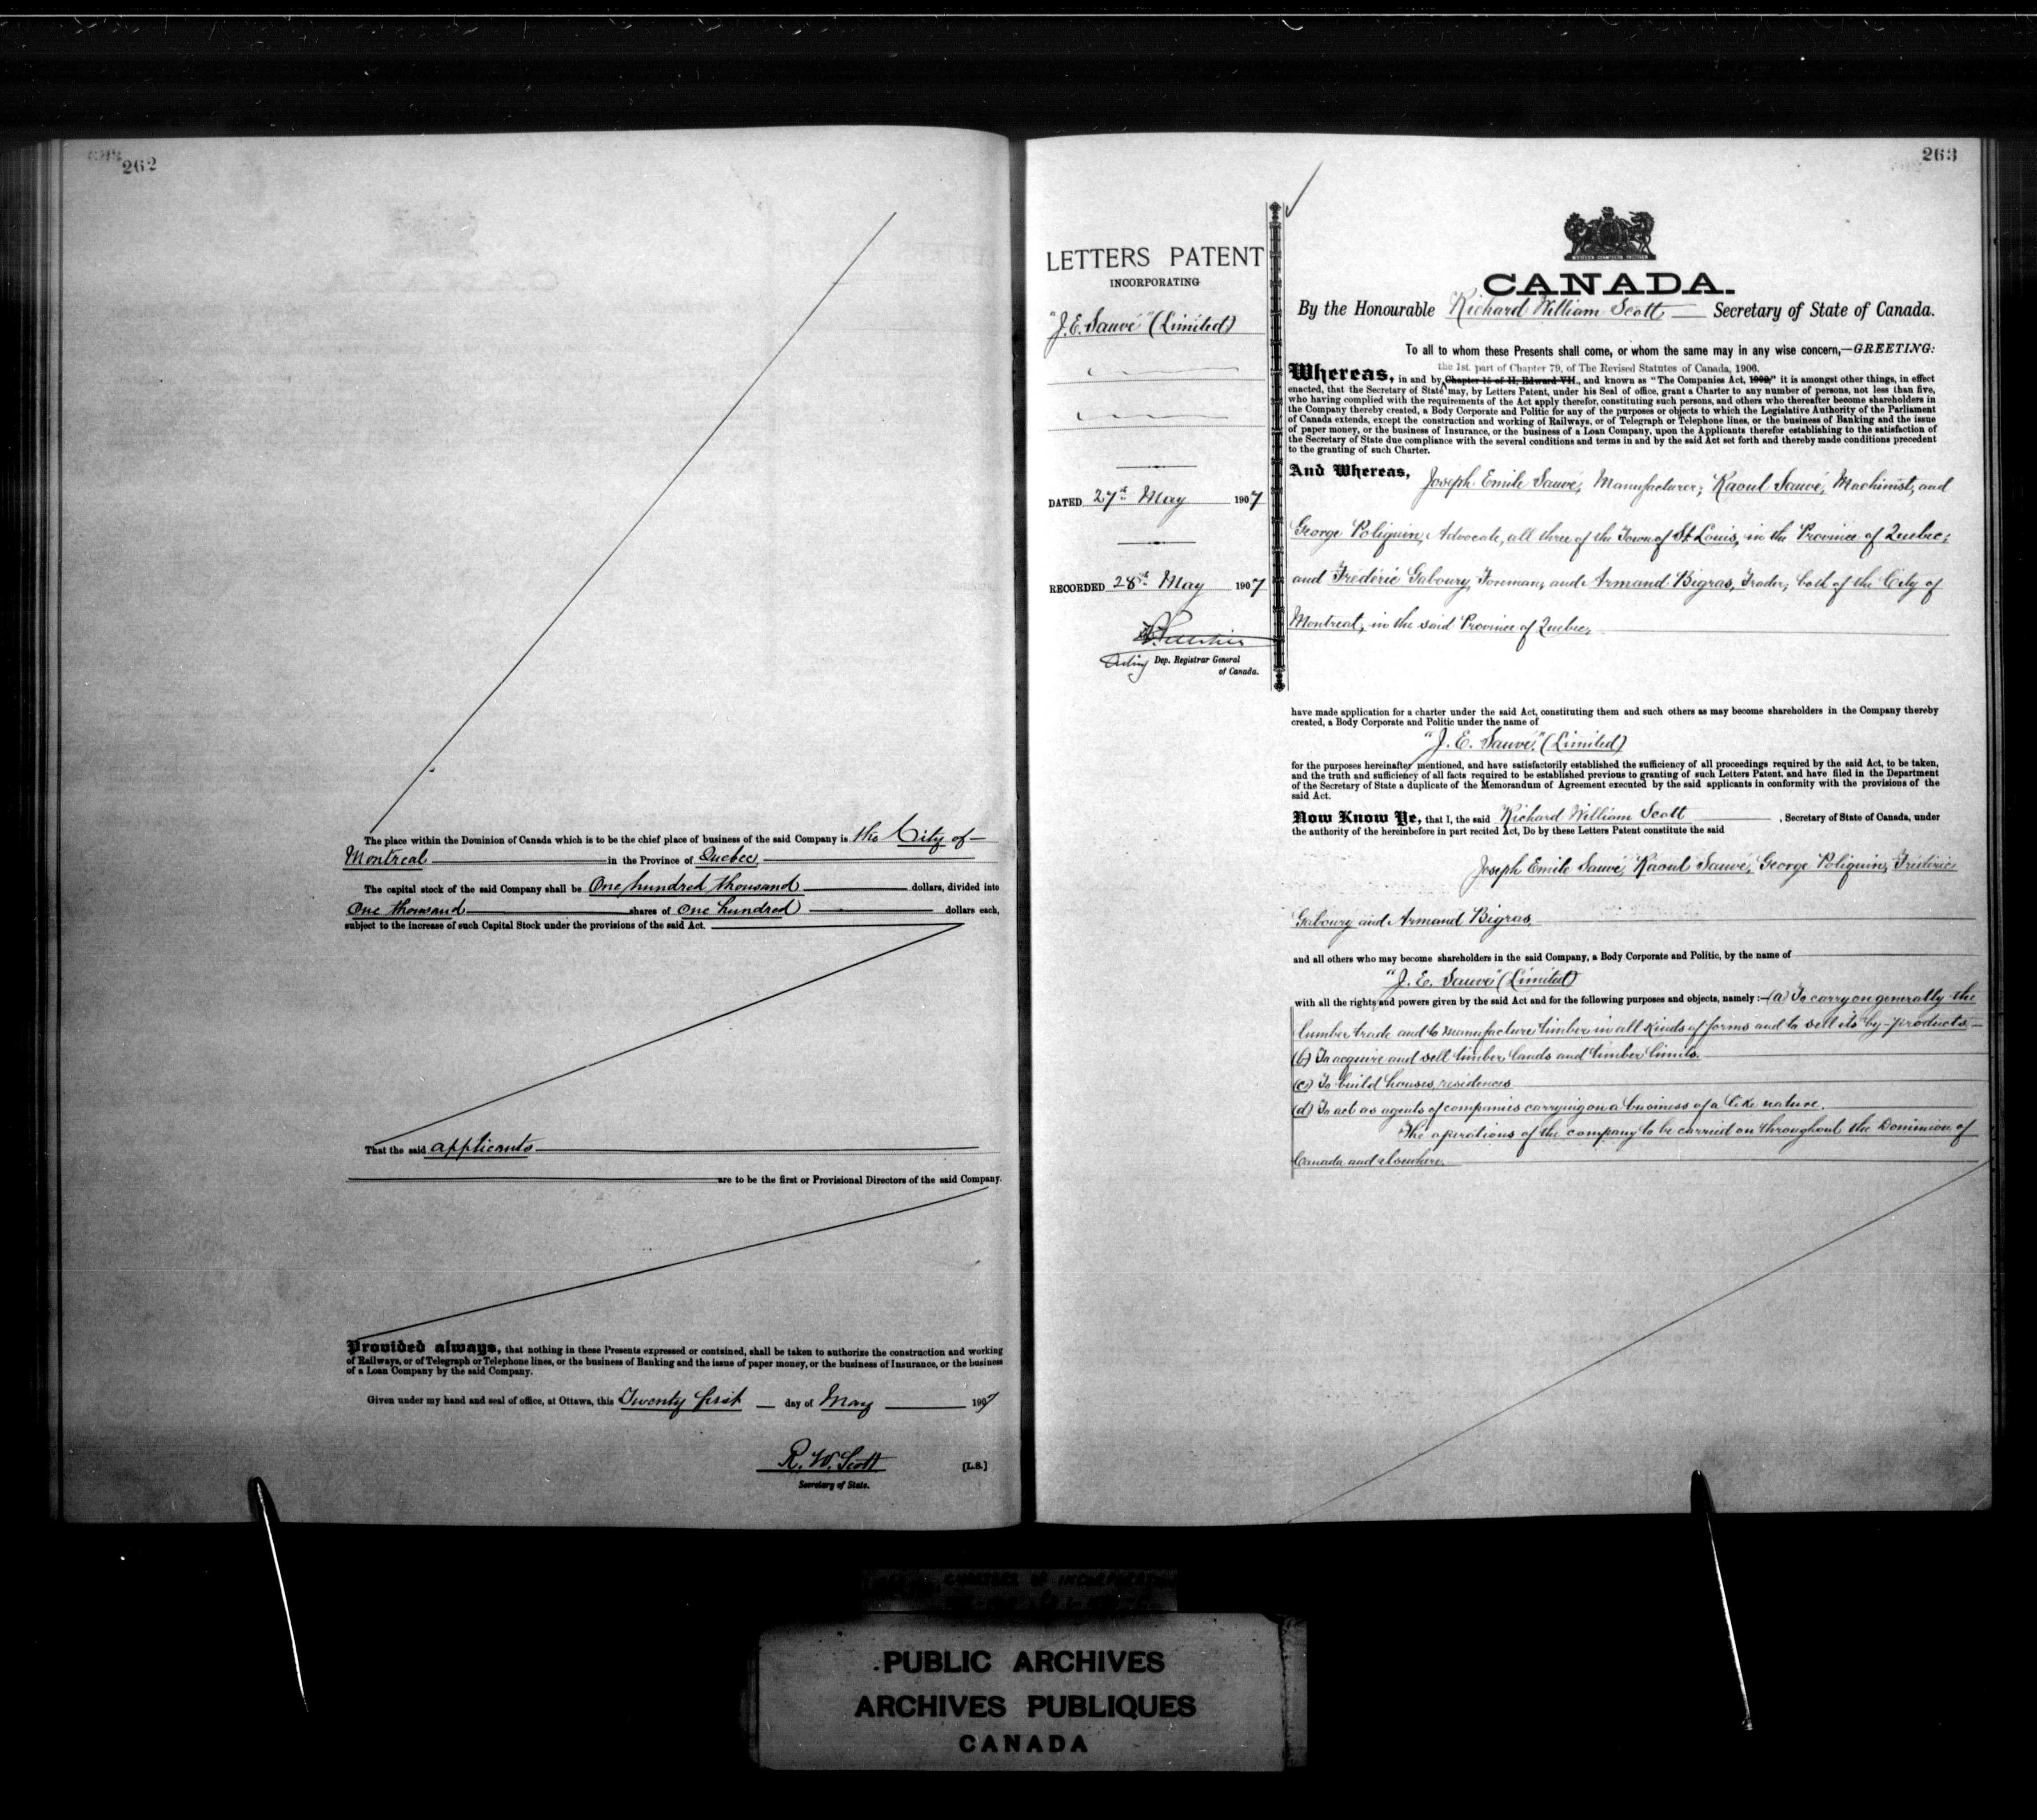 262
The place within the Dominion of Canada which is to be the chief place of business of the said Company is the City of
Montreal in the Province of Quebec,
The capital stock of the said Company shall be One hundred thousand dollars, divided into
One thousand shares of one hundred dollars each,
subject to the increase of such Capital Stock under the provisions of the said Act.
That the said applicants
are to be the first or Provisional Directors of the said Company.
Provided always, that nothing in these Presents expressed or contained, shall be taken to authorize the construction and working
of Railways, or of Telegraph or Telephone lines, or the business of Banking and the issue of paper money, or the business of Insurance, or the business
of a Loan Company by the said Company.
Given under my hand and seal of office, at Ottawa, this Twenty first day of May 1907
R. W. Scott
[L.S.]
Secretary of State.
263
LETTERS PATENT
INCORPORATING
"J. E. Sauvé" (Limited)
DATED 27th May 1907
RECORDED 28th May 1907
Acting Dep. Registrar General
of Canada.
CANADA.
By the Honourable Richard William Scott Secretary of State of Canada.
To all to whom these Presents shall come, or whom the same may in any wise concern,—GREETING:
the 1st. part of Chapter 79, of The Revised Statutes of Canada, 1906.
Whereas, in and by Chapter 15 of II, Edward VII., and known as "The Companies Act, 1902," it is amongst other things, in effect
enacted, that the Secretary of State may, by Letters Patent, under his Seal of office, grant a Charter to any number of persons, not less than five,
who having complied with the requirements of the Act apply therefor, constituting such persons, and others who thereafter become shareholders in
the Company thereby created, a Body Corporate and Politic for any of the purposes or objects to which the Legislative Authority of the Parliament
of Canada extends, except the construction and working of Railways, or of Telegraph or Telephone lines, or the business of Banking and the issue
of paper money, or the business of Insurance, or the business of a Loan Company, upon the Applicants therefor establishing to the satisfaction of
the Secretary of State due compliance with the several conditions and terms in and by the said Act set forth and thereby made conditions precedent
to the granting of such Charter.
And Whereas, Joseph Emile Sauvé, Manufacturer; Raoul Sauvé, Machinist, and
George Poliquin, Advocate, all three of the Town of St. Louis, in the Province of Quebec;
and Frédéric Gaboury, Foreman, and Armand Bigras, Trader, both of the City of
Montreal, in the said Province of Quebec,
have made application for a charter under the said Act, constituting them and such others as may become shareholders in the Company thereby
created, a Body Corporate and Politic under the name of
"J. E. Sauvé" (Limited)
for the purposes hereinafter mentioned, and have satisfactorily established the sufficiency of all proceedings required by the said Act, to be taken,
and the truth and sufficiency of all facts required to be established previous to granting of such Letters Patent, and have filed in the Department
of the Secretary of State a duplicate of the Memorandum of Agreement executed by the said applicants in conformity with the provisions of the
said Act.
Now Know Ye, that I, the said Richard William Scott, Secretary of State of Canada, under
the authority of the hereinbefore in part recited Act, Do by these Letters Patent constitute the said
Joseph Emile Sauvé, Raoul Sauvé, George Poliquin, Fréderic
Gaboury and Armand Bigras,
and all others who may become shareholders in the said Company, a Body Corporate and Politic, by the name of
"J. E. Sauvé" (Limited)
with all the rights and powers given by the said Act and for the following purposes and objects, namely:—(a) To carry on generally the
lumber trade and to manufacture timber in all kinds of forms and to sell its by-products,
(b) To acquire and sell timber lands and timber limits.
(c) To build houses, residences
(d) To act as agents of companies carrying on a business of a like nature.
The operations of the company to be carried on throughout the Dominion of
Canada and elsewhere.
CHARTERS OF INCORPORATION
PUBLIC ARCHIVES
ARCHIVES PUBLIQUES
CANADA